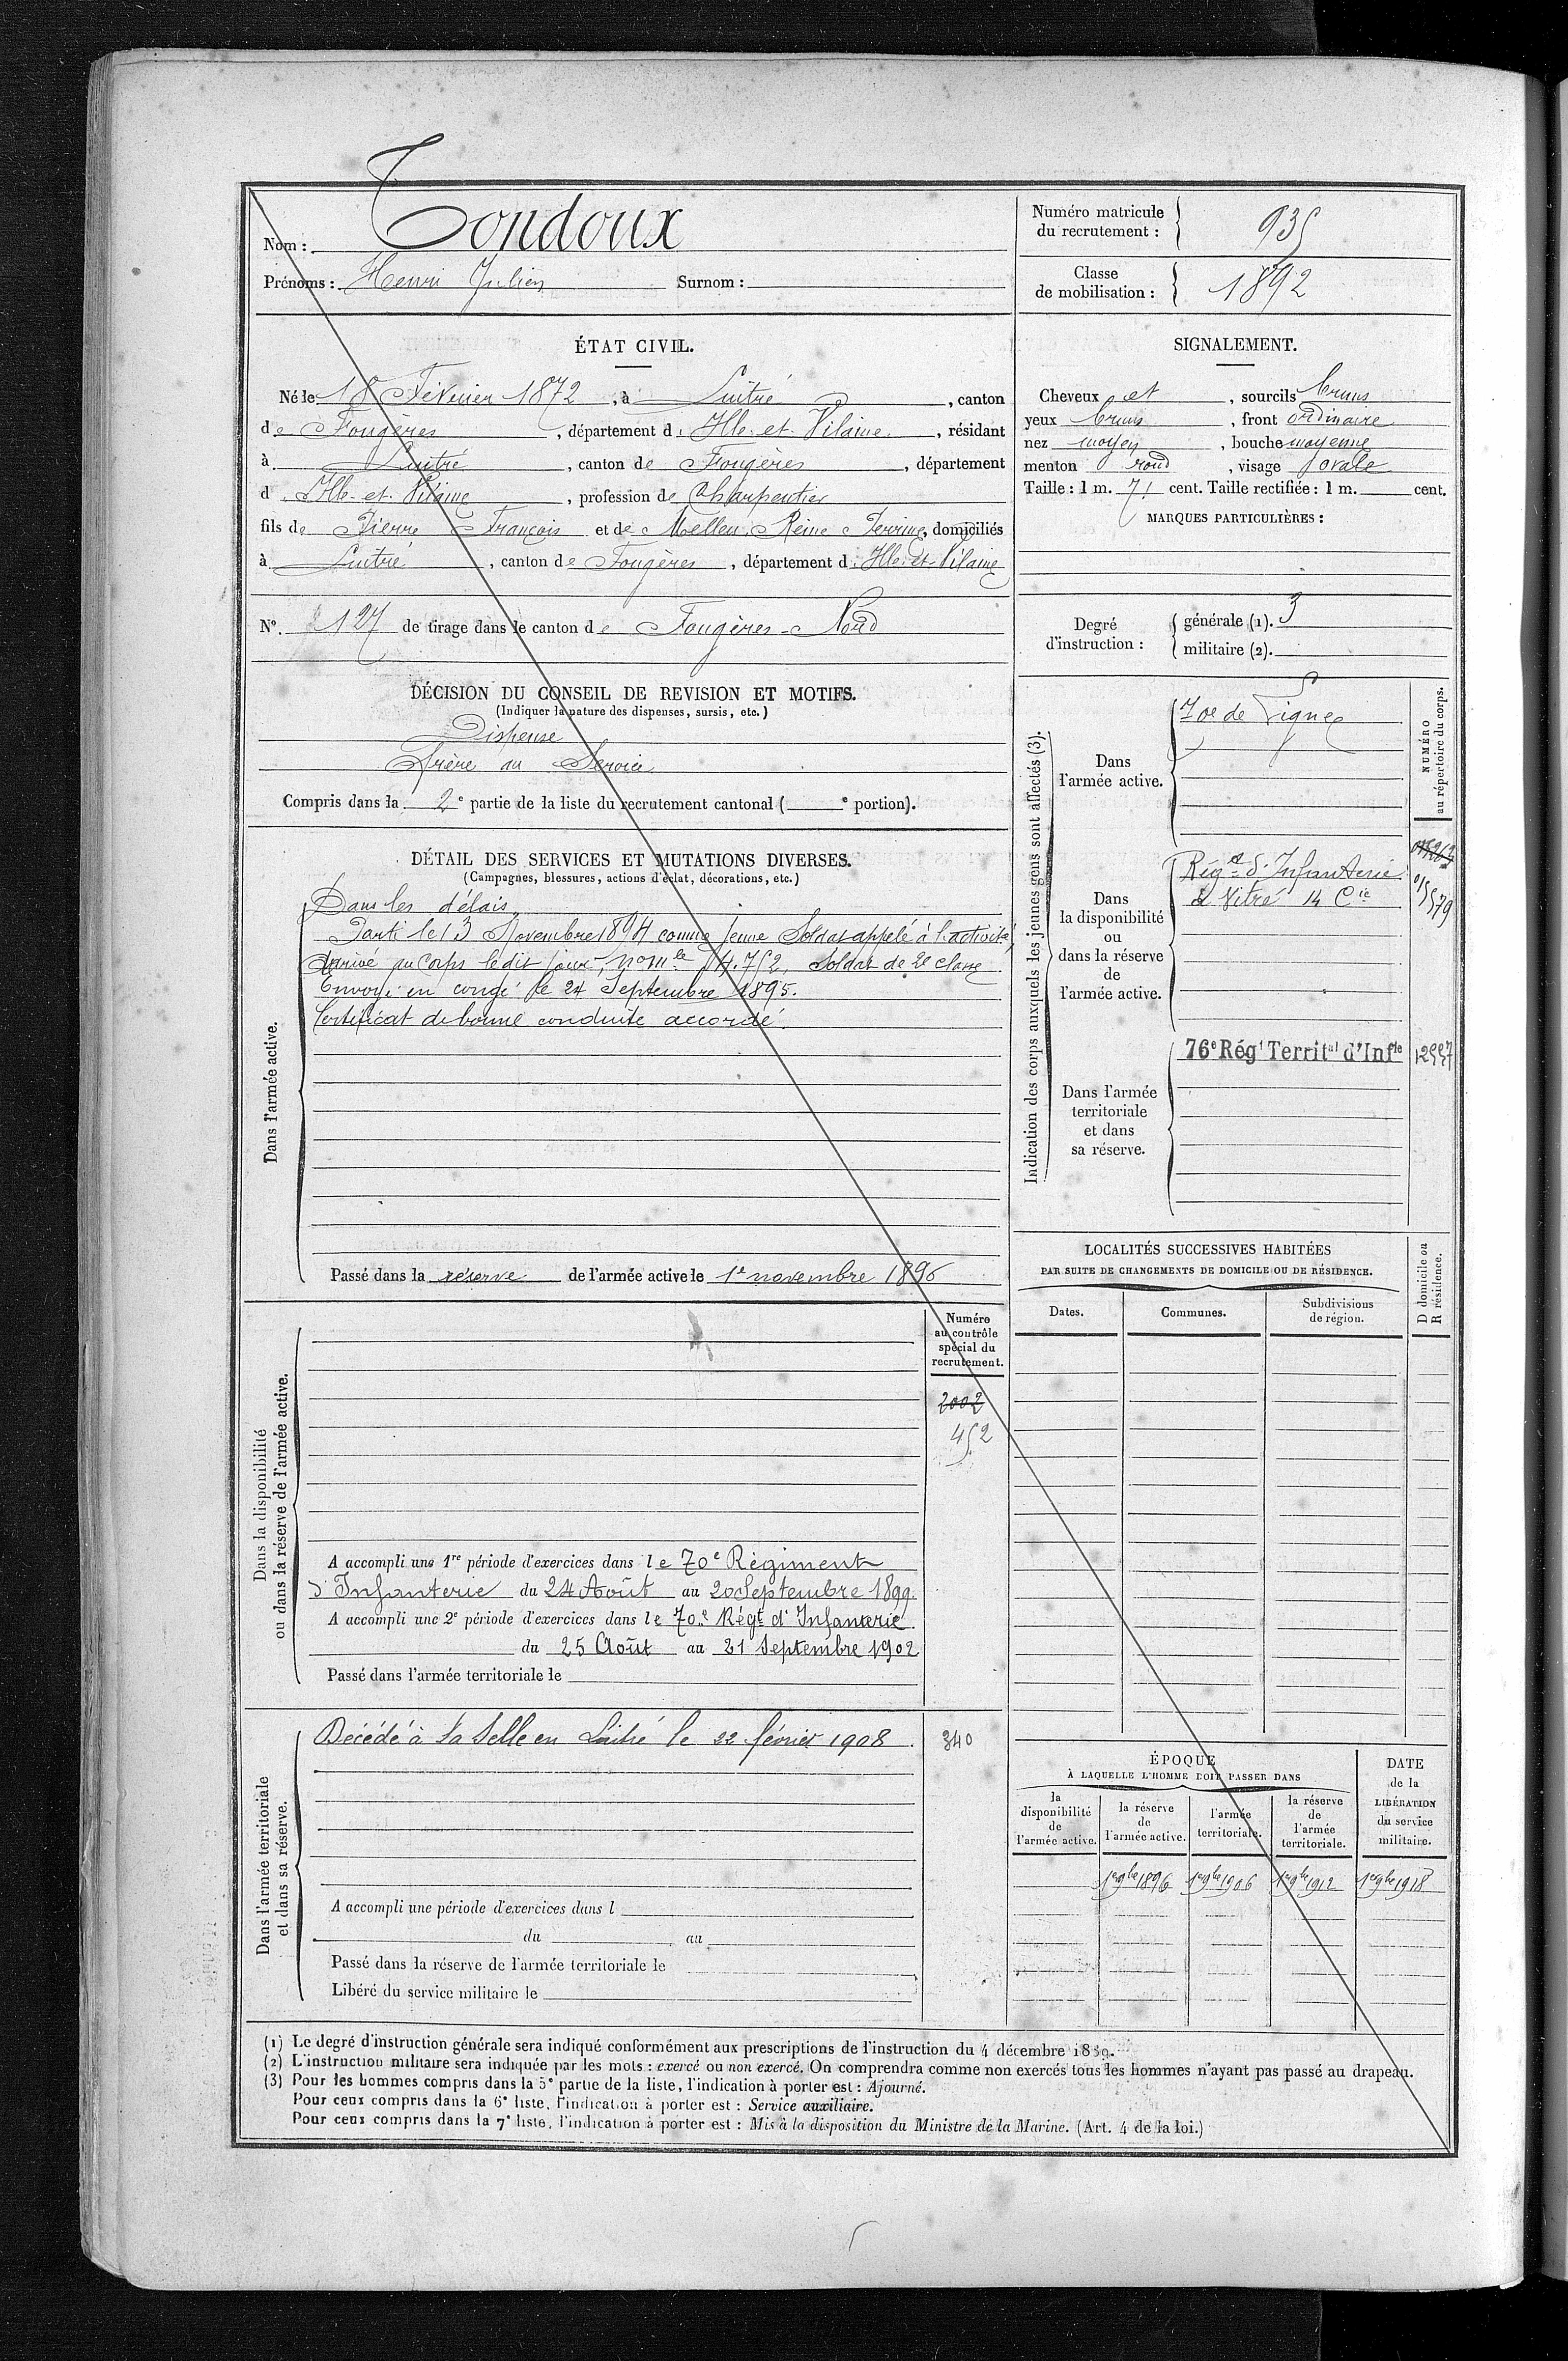 Nom : Tondoux
Prénoms : Henri Julien Surnom :
Numéro matricule du recrutement : 935
Classe de mobilisation : 1892
ÉTAT CIVIL.
Né le 18 Février 1872, à Luitré, canton
de Fougères, département d'Ille-et-Vilaine, résidant
à Luitré, canton de Fougères, département
d'Ille-et-Vilaine, profession de Charpentier
fils de Pierre François et de Mellet Reine Perrine, domiciliés
à Luitré, canton de Fougères, département d'Ille-et-Vilaine
N° 127 de tirage dans le canton de Fougères-Nord
SIGNALEMENT.
Cheveux et, sourcils bruns
yeux bruns, front ordinaire
nez moyen, bouche moyenne
menton rond, visage ovale
Taille : 1 m. 71 cent. Taille rectifiée : 1 m. cent.
MARQUES PARTICULIÈRES :
Degré d'instruction :
générale (1). 3
militaire (2).
DÉCISION DU CONSEIL DE REVISION ET MOTIFS.
(Indiquer la nature des dispenses, sursis, etc.)
Dispensé
Frère au Service
Compris dans la 2e partie de la liste du recrutement cantonal ( e portion).
DÉTAIL DES SERVICES ET MUTATIONS DIVERSES.
(Campagnes, blessures, actions d'éclat, décorations, etc.)
Dans l'armée active.
Dans les délais
Parti le 13 Novembre 1894 comme jeune Soldat appelé à l'activité,
Arrivé au Corps ledit jour, no mle 14.752, Soldat de 2e classe
Envoyé en congé le 24 Septembre 1895.
Certificat de bonne conduite accordé.
Passé dans la réserve de l'armée active le 1e novembre 1896
Indication des corps auxquels les jeunes gens sont affectés (3).
NUMÉRO au répertoire du corps.
Dans l'armée active.
70e de Ligne
Dans la disponibilité ou dans la réserve de l'armée active.
Régt d'Infanterie
de Vitré 14 Cie
01579
Dans l'armée territoriale et dans sa réserve.
76e Régt Territal d'Infie
LOCALITÉS SUCCESSIVES HABITÉES
PAR SUITE DE CHANGEMENTS DE DOMICILE OU DE RÉSIDENCE.
Dates. Communes. Subdivisions de région. D domicile ou R résidence.
Dans la disponibilité ou dans la réserve de l'armée active.
Numéro au contrôle spécial du recrutement.
2002
452
A accompli une 1re période d'exercices dans le 70e Régiment
d'Infanterie du 24 Août au 20 Septembre 1899.
A accompli une 2e période d'exercices dans le 70e Régt d'Infanterie
du 25 Août au 21 Septembre 1902
Passé dans l'armée territoriale le
Dans l'armée territoriale et dans sa réserve.
Décédé à la Selle en Luitré le 22 février 1908. 340
A accompli une période d'exercices dans l
du au
Passé dans la réserve de l'armée territoriale le
Libéré du service militaire le
ÉPOQUE
À LAQUELLE L'HOMME DOIT PASSER DANS
la disponibilité de l'armée active.
la réserve de l'armée active.
l'armée territoriale.
la réserve de l'armée territoriale.
DATE de la LIBÉRATION du service militaire.
1er 9bre 1896 1er 9bre 1906 1er 9bre 1912 1er 9bre 1918
(1) Le degré d'instruction générale sera indiqué conformément aux prescriptions de l'instruction du 4 décembre 1889.
(2) L'instruction militaire sera indiquée par les mots : exercé ou non exercé. On comprendra comme non exercés tous les hommes n'ayant pas passé au drapeau.
(3) Pour les hommes compris dans la 5e partie de la liste, l'indication à porter est : Ajourné.
Pour ceux compris dans la 6e liste, l'indication à porter est : Service auxiliaire.
Pour ceux compris dans la 7e liste, l'indication à porter est : Mis à la disposition du Ministre de la Marine. (Art. 4 de la loi.)